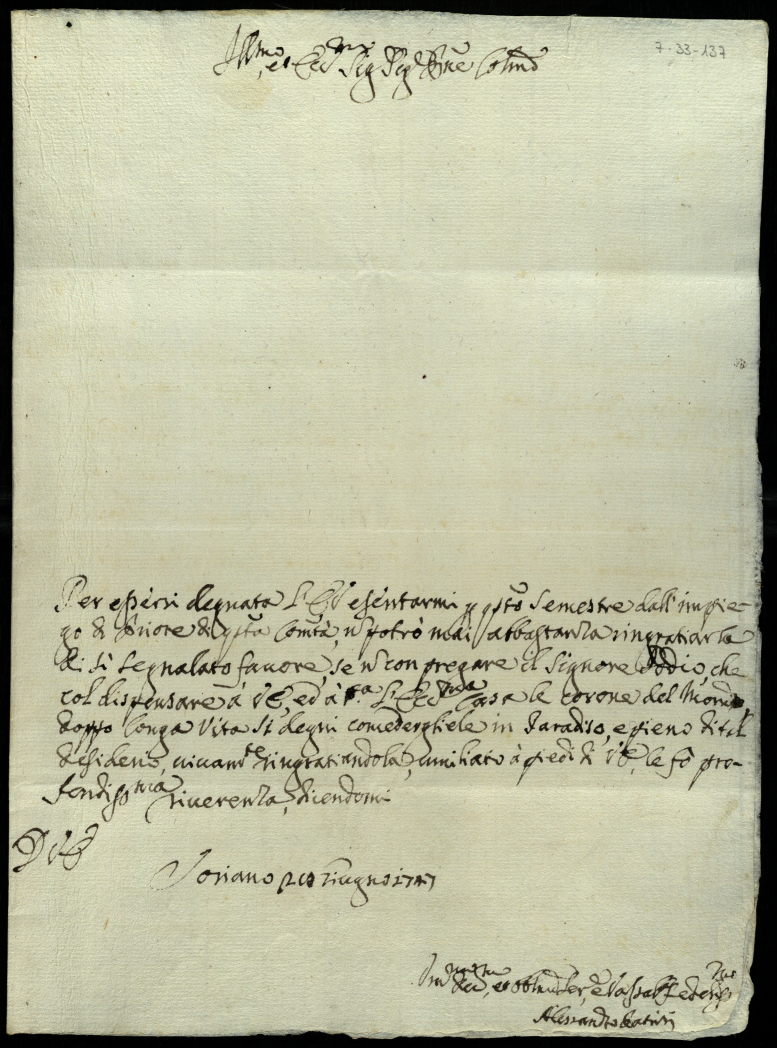 7-33-137
Ill.mo, et Ecc.mo Sig. Sig. P.ne Col.mo
Per essersi degnata L'E.V. esentarmi p q.sto Semestre dall'impie-
go di Priore di q.sta Com.tà, n potrò mai abbastanza ringratiarla
di si Segnalato favore, se n con pregare il Signore Iddio, che
col dispensare à V.E., ed à S.a L'Ecc.ma Casa le corone del Mondo,
doppo longa Vita si degni concedergliele in Paradiso, e pieno di tal
desiderio, vivam.te ringratiandola, umiliato à piedi di V.E., le fò pro-
fondiss.ma riverenza, dicendomi
D V.E.
Soriano Giugno 1747
Ser., e Vassallo
Alessandro